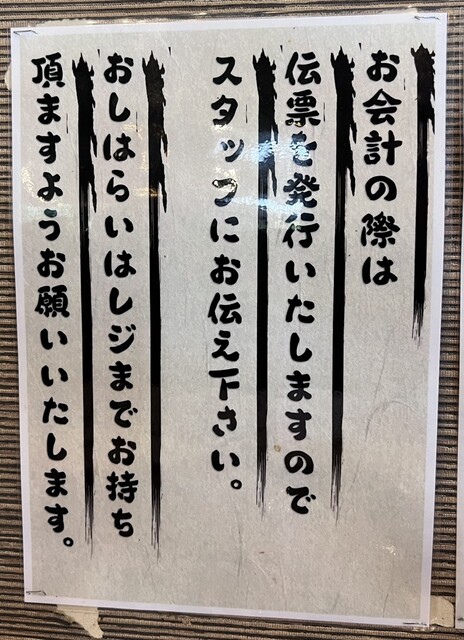 お会計の際は
伝票を発行いたしますので
スタッフにお伝え下さい。
おしはらいはレジまでお持ち
頂ますようお願いいたします。